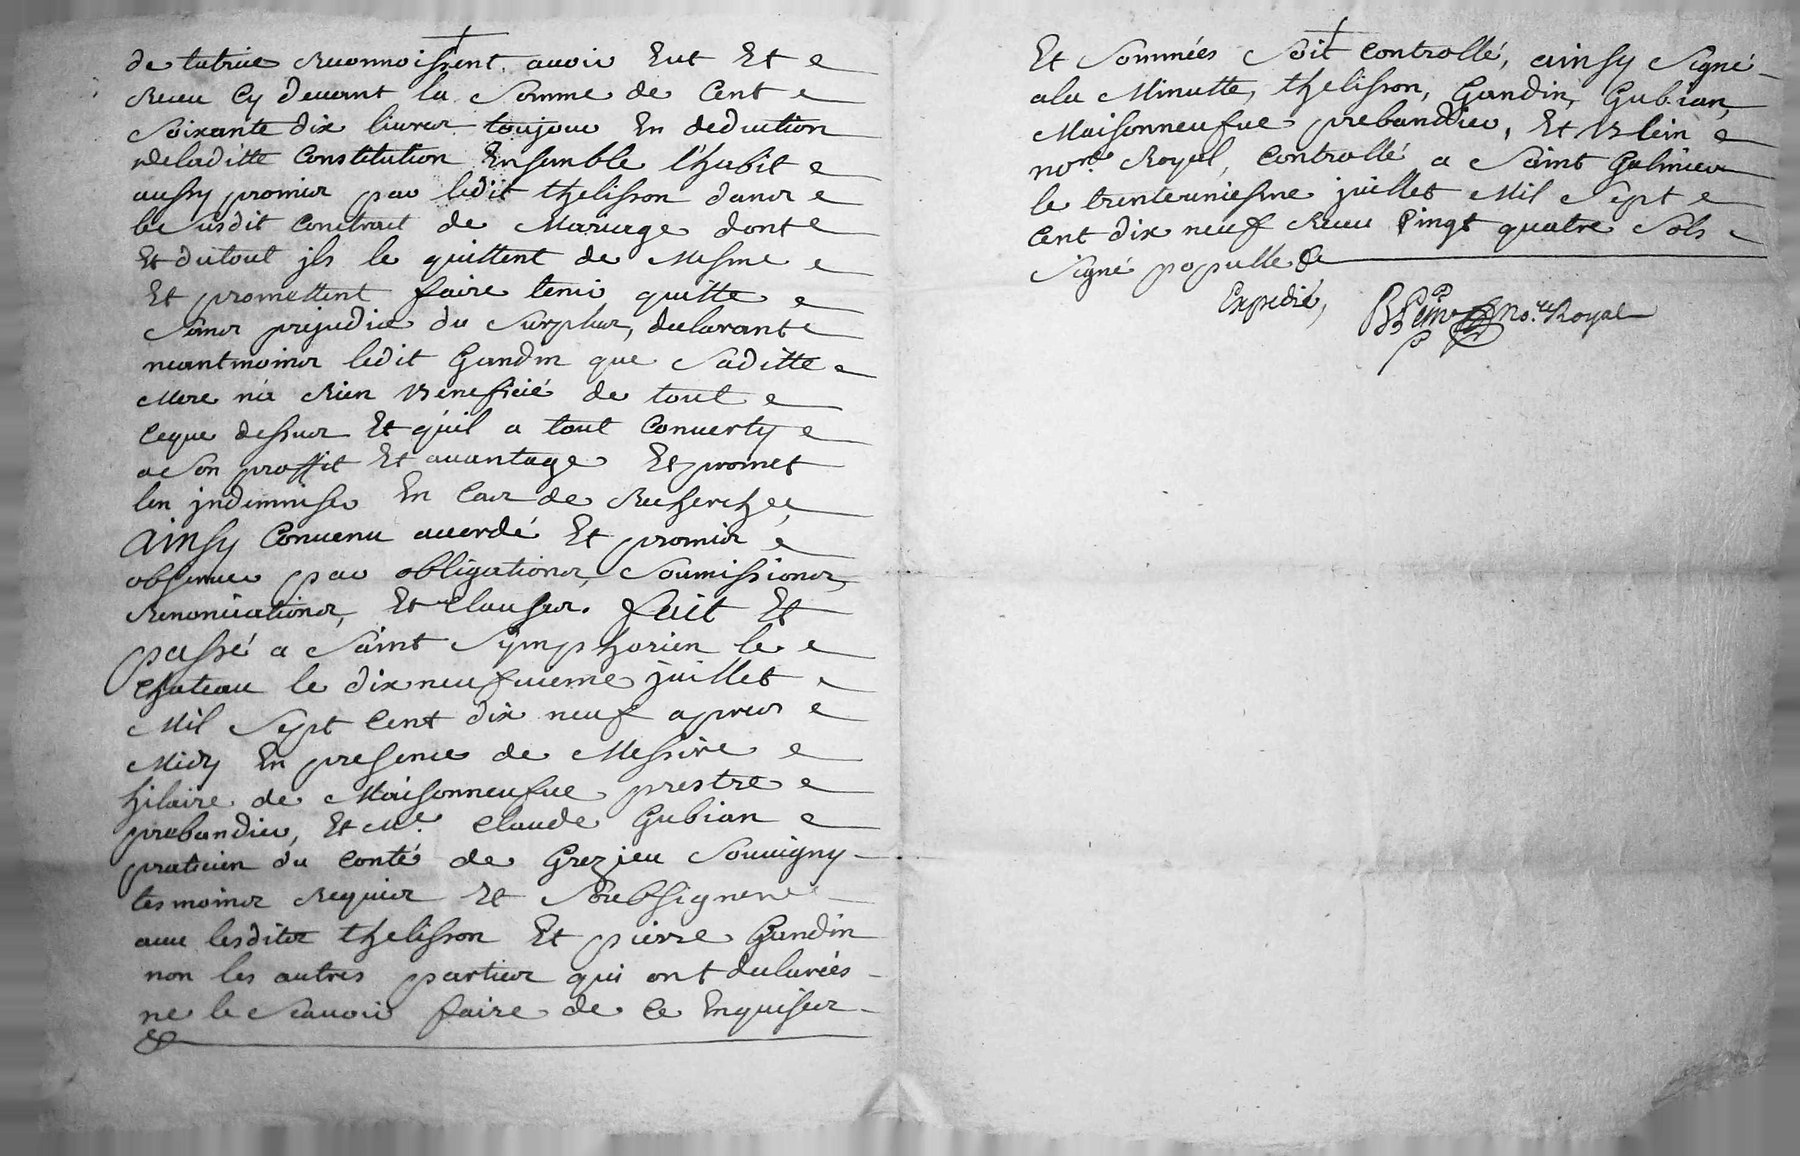 de tutrice Reconnoissent avoir Eut Et
Receu Cy devant la Somme de Cent
Soixante dix livres toujour En deduction
delladitte Constitution Ensemble l'habit
aussy promis par ledit thelisson dans
le Susdit Contract de Mariage dont
Et dutout jls le quittent de Mesme
Et promettent faire tenir quitte
Sans prejudice du Surplus, declarant
neantmoins ledit Gandin que Saditte
Mere n'a Rien Beneficié de tout
Ceque dessus Et qu'il a tout Converty
a Son proffit Et avantage Et promet
len jndemniser En Cas de Recherche,
Ainsy Convenu accordé Et promis
observer par obligations, Soumissions,
Renonciations, Et Clauses. fait Et
passé a Saint Symphorien le
Chateau le dixneufvieme juillet
Mil Sept Cent dix neuf apres
Midy En presence de Messire
hilaire de Maisonneufve prestre
prebandier, Et Me. Claude Gubian
praticien du Conté de Grezieu Souvigny
tesmoins Requis Et Soubsignene
avec lesdits thelisson Et pierre Gandin
non les autres parties qui ont declarées
ne le Scavoir faire de Ce Enquises
&
Et Sommées Soit Controllé, ainsy Signé
ala Minutte, thelisson, Gandin, Gubian,
Maisonneufve prebandier, Et Blein
nore. Royal, Controllé a Saint Galmier
le trenteuniesme juillet Mil Sept
Cent dix neuf Receu Vingt quatre Sols
Signé populle &
Expedié,
BLein no.re Royal